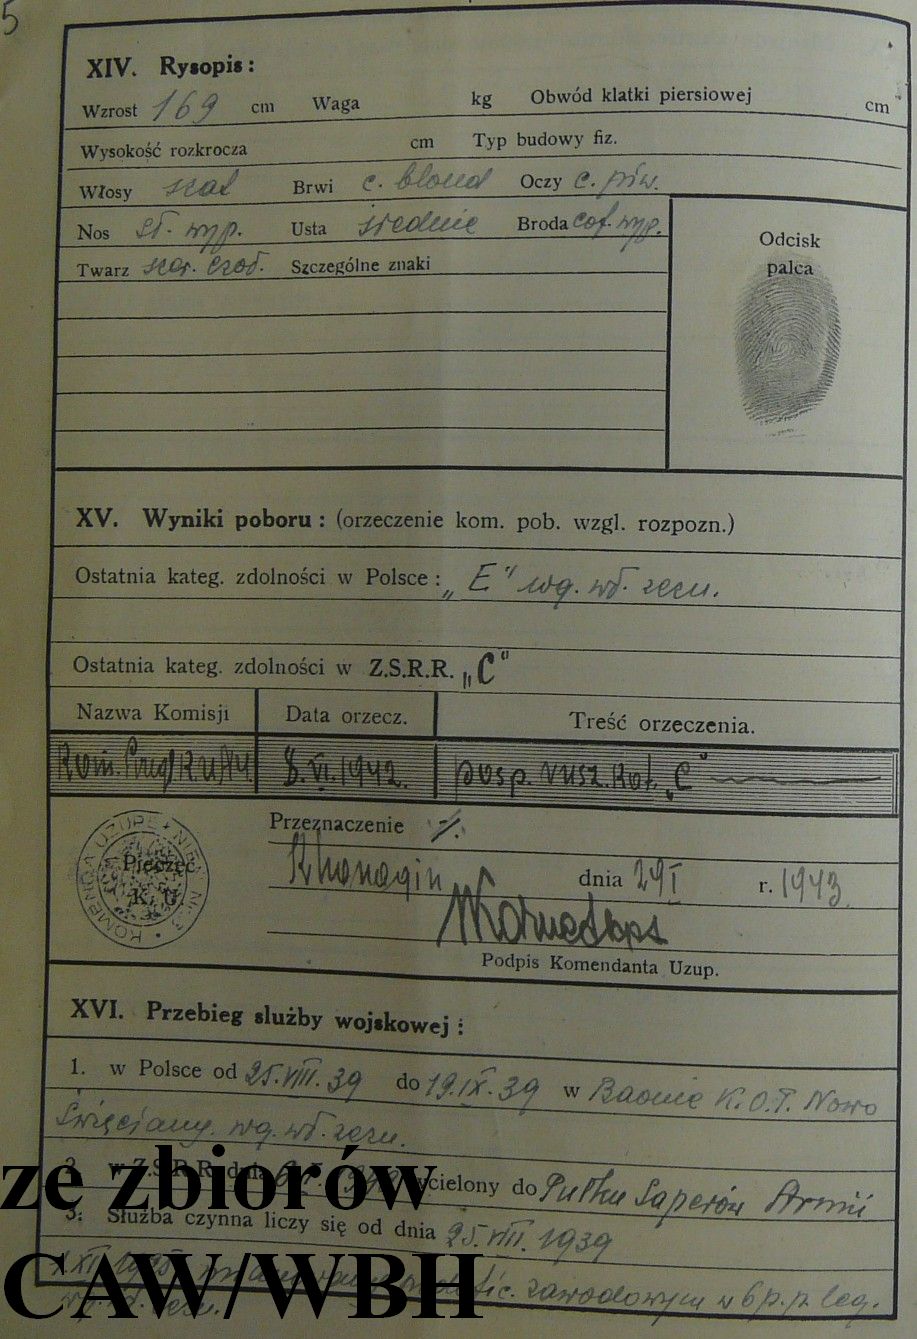 5
XIV. Rysopis :
Wzrost 169 cm Waga kg Obwód klatki piersiowej cm
Wysokość rozkrocza cm Typ budowy fiz.
Włosy szat Brwi c. blond Oczy c. piw.
Nos śr. wyp. Usta średnie Broda cof. wyp.
Twarz Szczególne znaki
Odcisk
palca
XV. Wyniki poboru : (orzeczenie kom. pob. wzgl. rozpozn.)
Ostatnia kateg. zdolności w Polsce : „E" wg. wł. zezn.
Ostatnia kateg. zdolności w Z.S.R.R. „C"
Nazwa Komisji Data orzecz. Treść orzeczenia.
8.VI.1942. posp. rusz. kat. „C"
Przeznaczenie •/.
Pieczęć
K. U.
KOMENDA UZUPE NR. 3
Khanagin dnia 29 I r. 1943.
Podpis Komendanta Uzup.
XVI. Przebieg służby wojskowej :
1. w Polsce od 25.VIII.39 do 19.IX.39 w Baonie K.O.P. Nowo
Święciany. wg. wł. zezn.
2. w Z.S.R.R. dnia wcielony do Pułku Saperów Armii
3. Służba czynna liczy się od dnia 25.VIII.1939
zawodowym w 6 p.p. leg.
wg. wł. zezn.
ze zbiorów
CAW/WBH